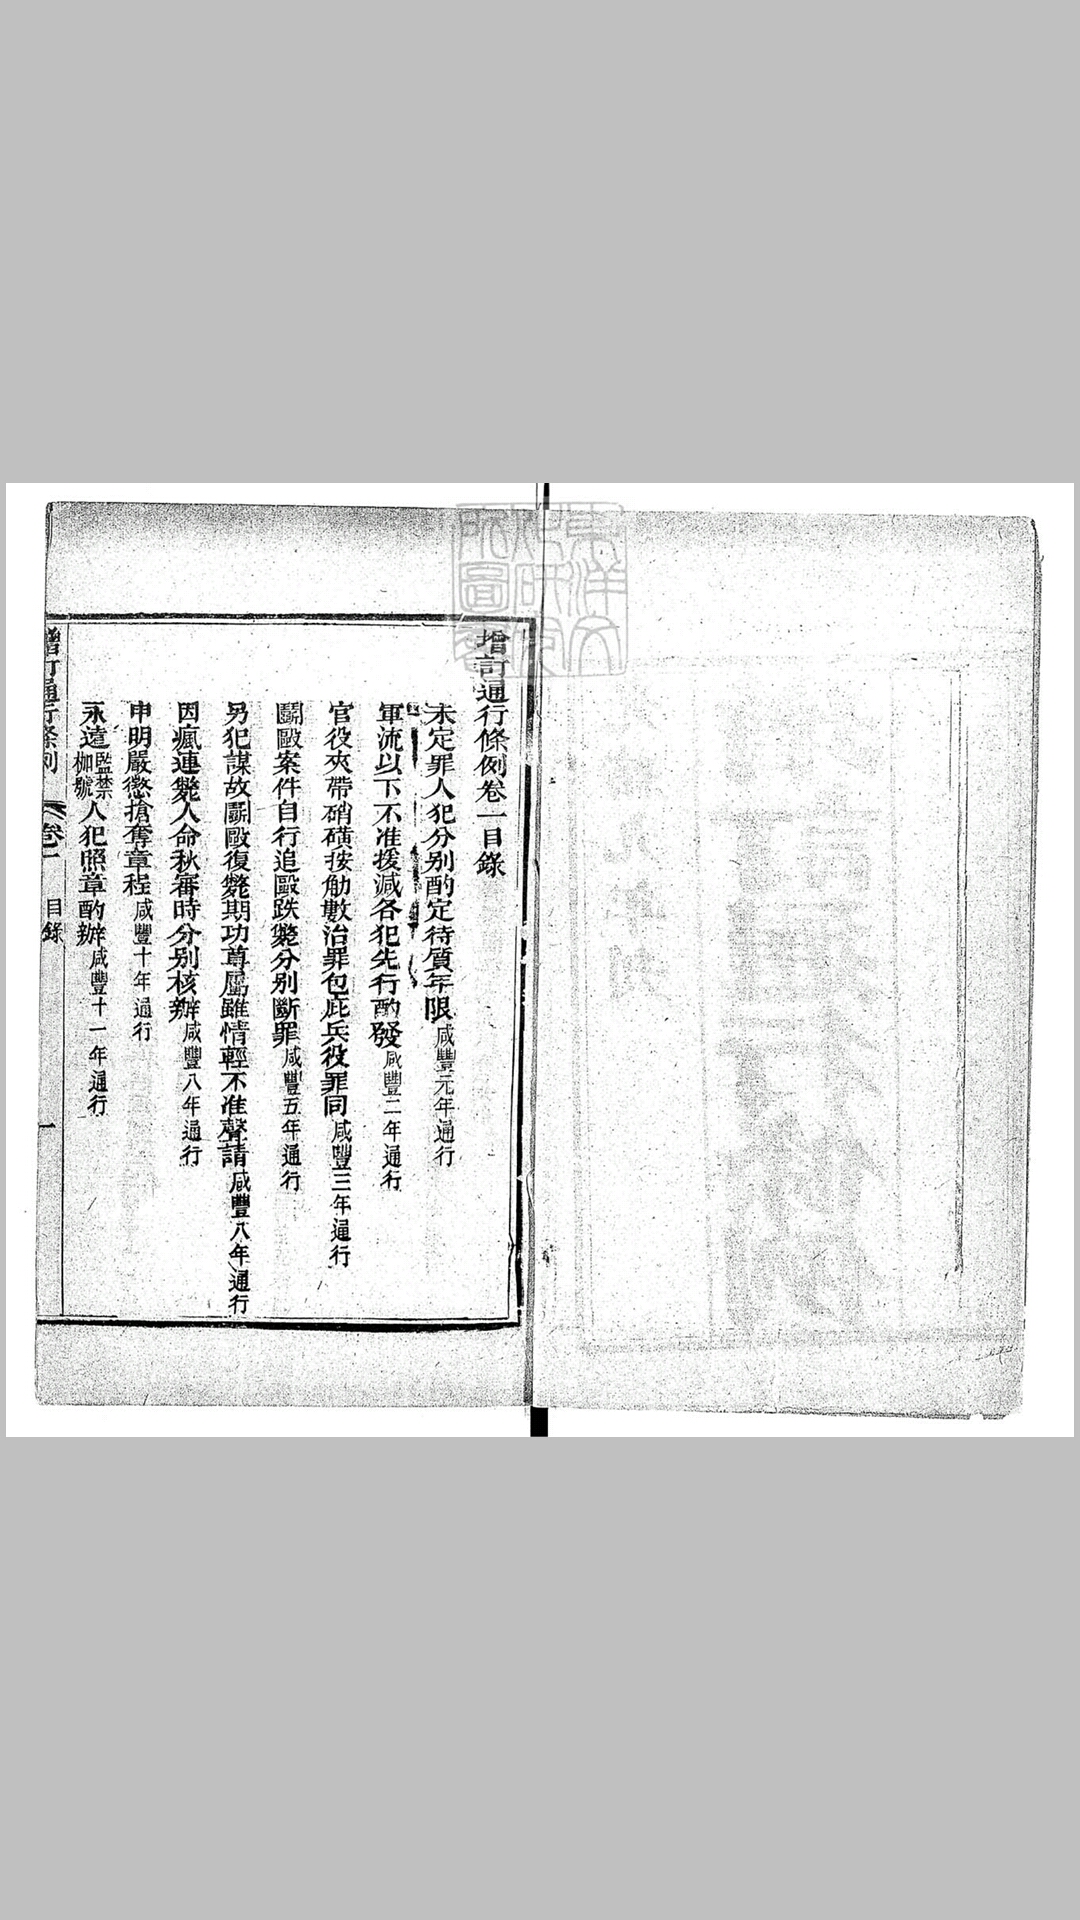 增訂通行條例卷一目錄
未定罪人犯分別酌定待質年限咸豐元年通行
軍流以下不准援減各犯先行酌發咸豐二年通行
官役夾帶硝磺按觔數治罪包庇兵役罪同咸豐三年通行
鬬毆案件自行追毆跌斃分別斷罪咸豐五年通行
另犯謀故鬬毆復斃期功尊屬雖情輕不准聲請咸豐八年通行
因瘋連斃人命秋審時分別核辦咸豐八年通行
申明嚴懲搶奪章程咸豐十年通行
永遠監禁枷號人犯照章酌辦咸豐十一年通行
增訂通行條例 卷一 目錄 一